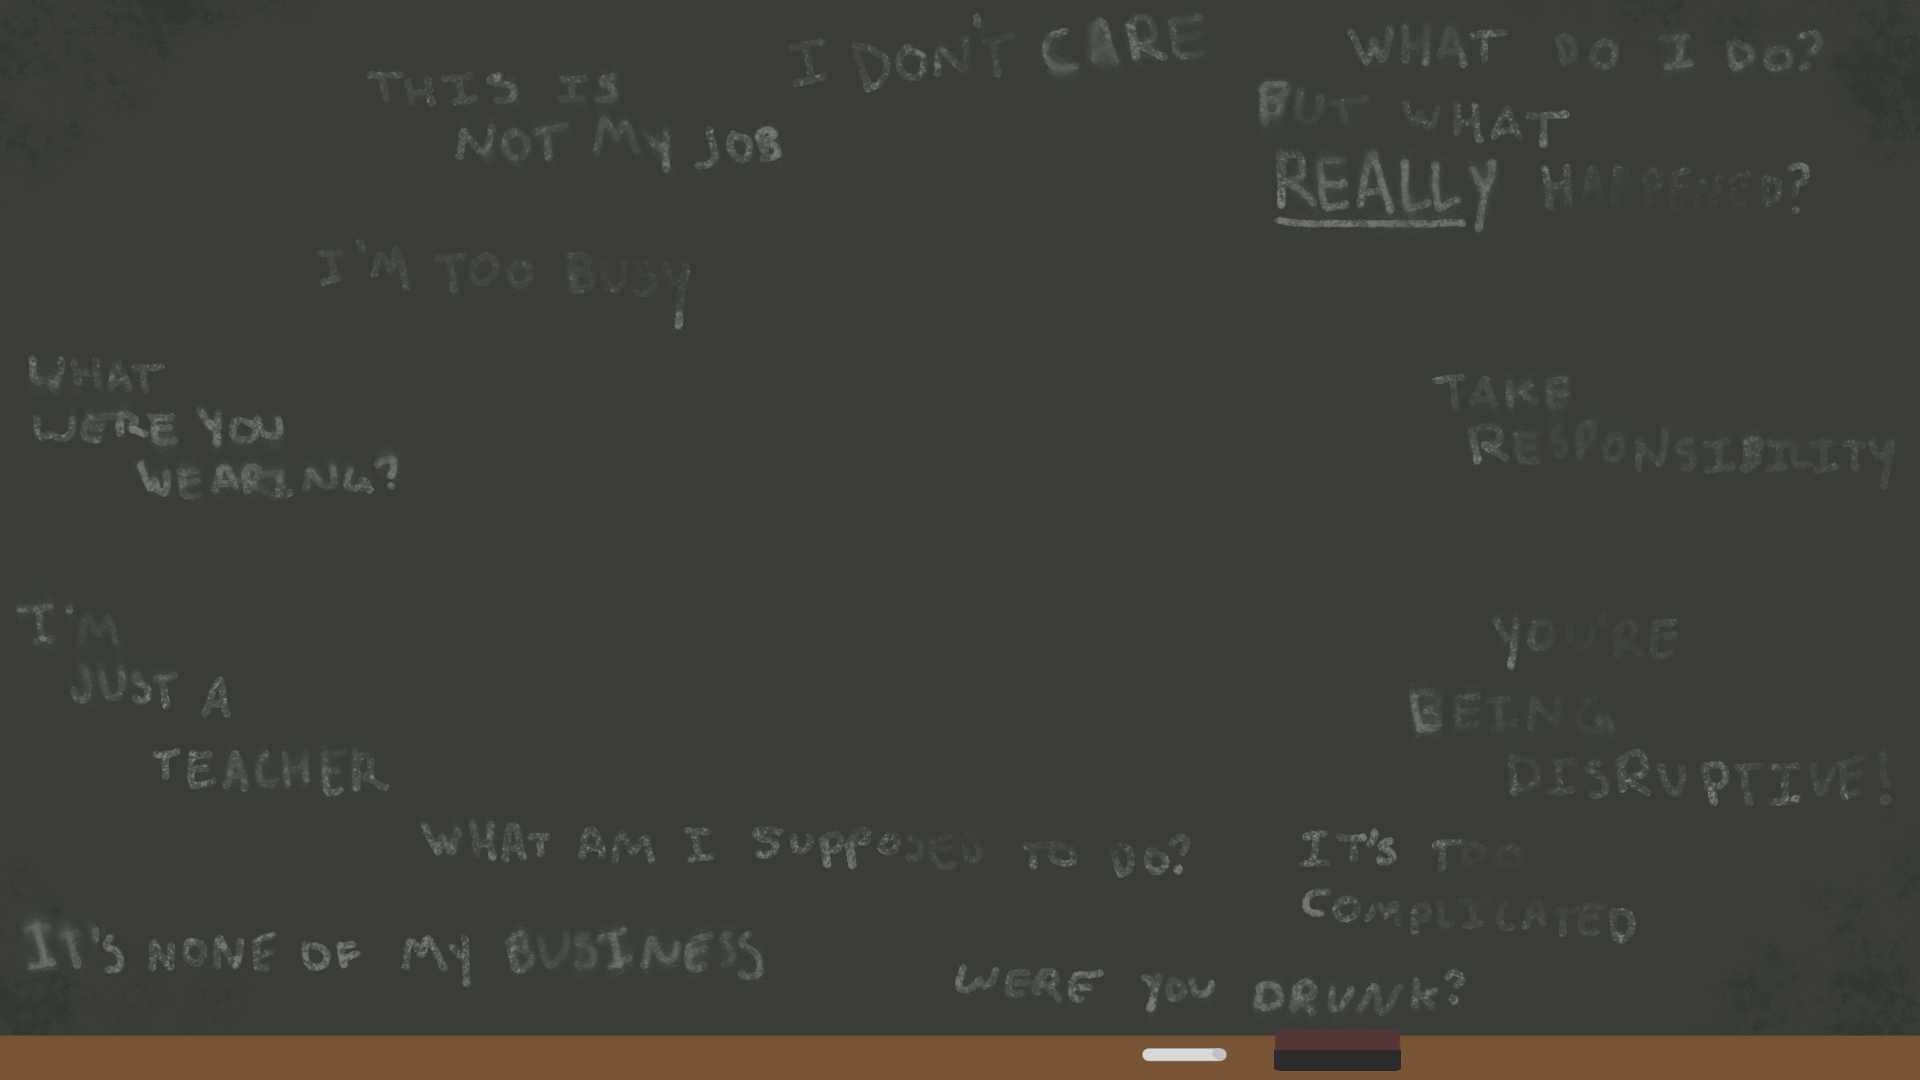 I DON'T CARE
WHAT DO I DO?
THIS IS
NOT MY JOB
BUT WHAT
REALLY HAPPENED?
I'M TOO BUSY
WHAT
WERE YOU
WEARING?
TAKE
RESPONSIBILITY
I'M
JUST A
TEACHER
YOU'RE
BEING
DISRUPTIVE!
WHAT AM I SUPPOSED TO DO?
IT'S TOO
COMPLICATED
IT'S NONE OF MY BUSINESS
WERE YOU DRUNK?